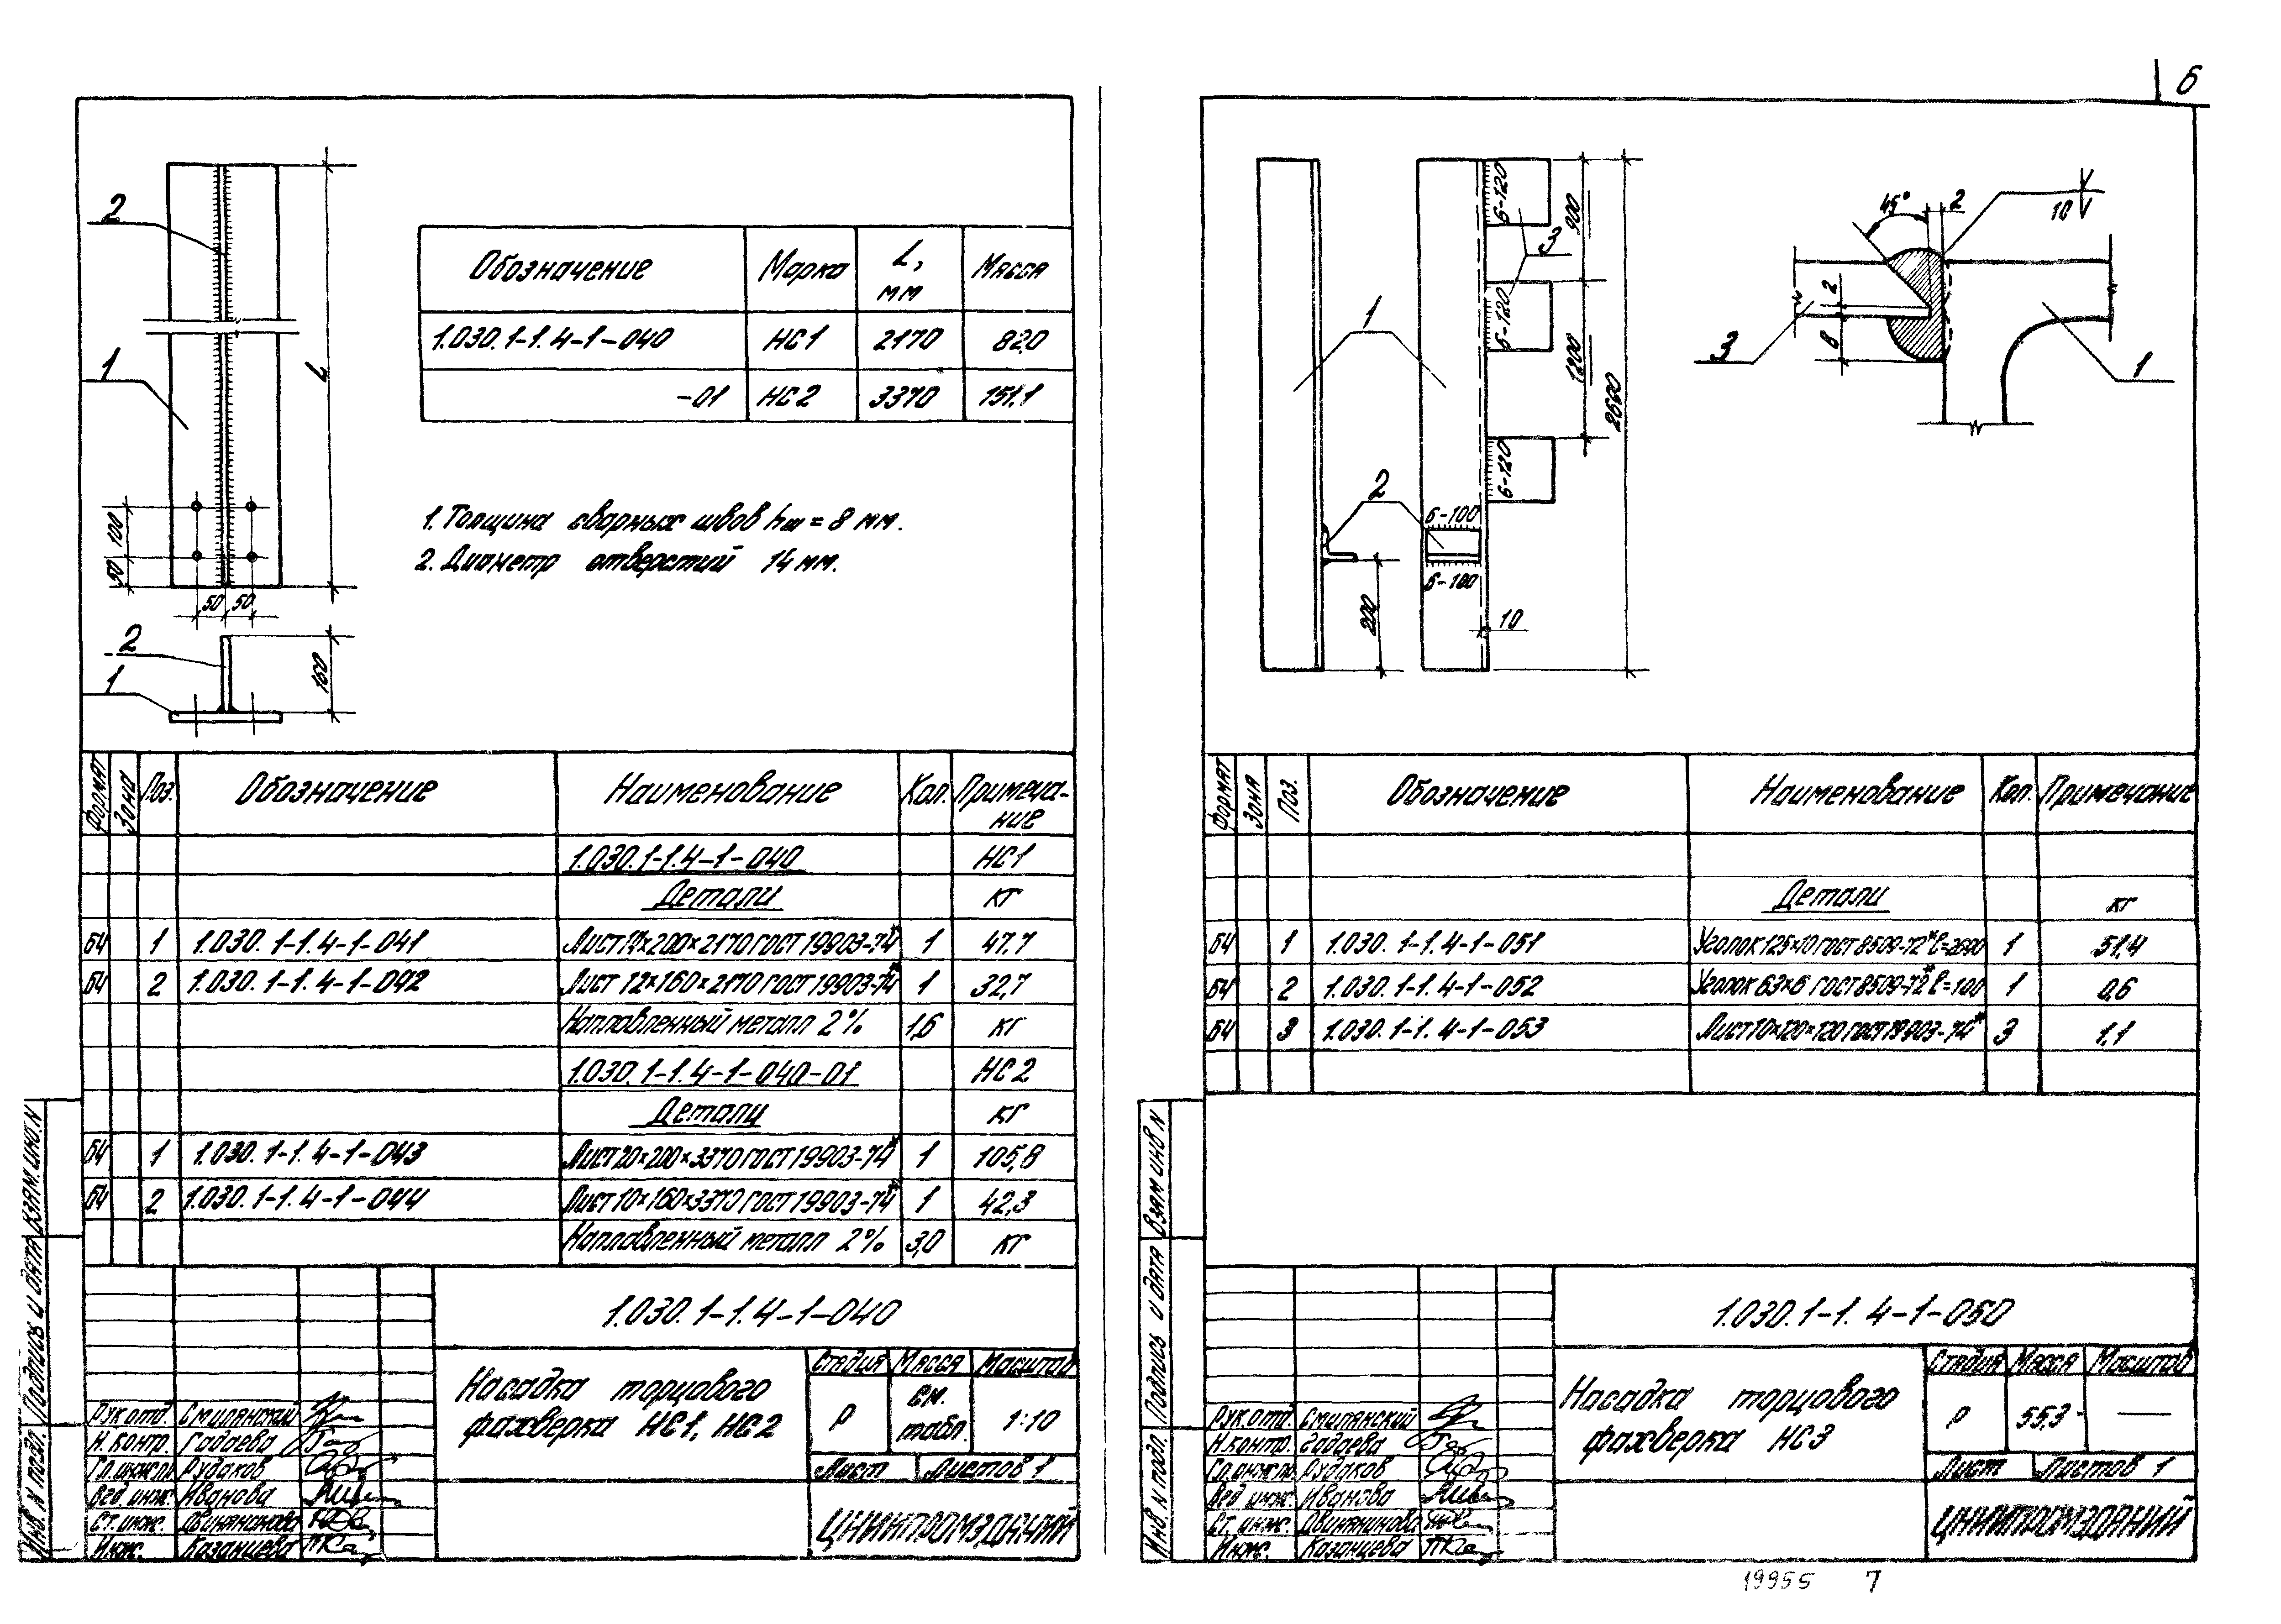 6
2
1
L
100
50
50 50
2
1
160
Обозначение Марка L, мм Масса
1.030.1-1.4-1-040 НС1 2170 82,0
-01 НС2 3370 151,1
1. Толщина сварных швов hш = 8 мм.
2. Диаметр отверстий 14 мм.
Формат Зона Поз. Обозначение Наименование Кол. Примеча-
ние
1.030.1-1.4-1-040 НС1
Детали кг
БЧ 1 1.030.1-1.4-1-041 Лист 14×200×2170 ГОСТ 19903-74* 1 47,7
БЧ 2 1.030.1-1.4-1-042 Лист 12×160×2170 ГОСТ 19903-74* 1 32,7
Наплавленный металл 2% 1,6 кг
1.030.1-1.4-1-040-01 НС2
Детали кг
БЧ 1 1.030.1-1.4-1-043 Лист 20×200×3370 ГОСТ 19903-74* 1 105,8
БЧ 2 1.030.1-1.4-1-044 Лист 10×160×3370 ГОСТ 19903-74* 1 42,3
Наплавленный металл 2% 3,0 кг
1.030.1-1.4-1-040
Насадка торцового
фахверка НС1, НС2
Стадия Масса Масштаб
Р см. табл. 1:10
Лист Листов 1
ЦНИИПРОМЗДАНИЙ
Рук.отд. Смилянский
Н.контр. Гадаева
Гл.инж.пр. Рудаков
Вед.инж. Иванова
Ст.инж. Двинянинова
Инж. Казанцева
Инв. N подл. Подпись и дата Взам.инв.N
1
2
3
6-120
6-120
6-120
900
1200
2600
6-100
6-100
200
10
45° 2
10
2
8
3
1
Формат Зона Поз. Обозначение Наименование Кол. Примечание
Детали кг
БЧ 1 1.030.1-1.4-1-051 Уголок 125×10 ГОСТ 8509-72* ℓ=2690 1 51,4
БЧ 2 1.030.1-1.4-1-052 Уголок 63×6 ГОСТ 8509-72* ℓ=100 1 0,6
БЧ 3 1.030.1-1.4-1-053 Лист 10×120×120 ГОСТ 19903-74* 3 1,1
1.030.1-1.4-1-050
Насадка торцового
фахверка НС3
Стадия Масса Масштаб
Р 55,3 —
Лист Листов 1
ЦНИИПРОМЗДАНИЙ
Рук.отд. Смилянский
Н.контр. Гадаева
Гл.инж.пр. Рудаков
Вед.инж. Иванова
Ст.инж. Двинянинова
Инж. Казанцева
Инв. N подл. Подпись и дата Взам инв N
19955 7